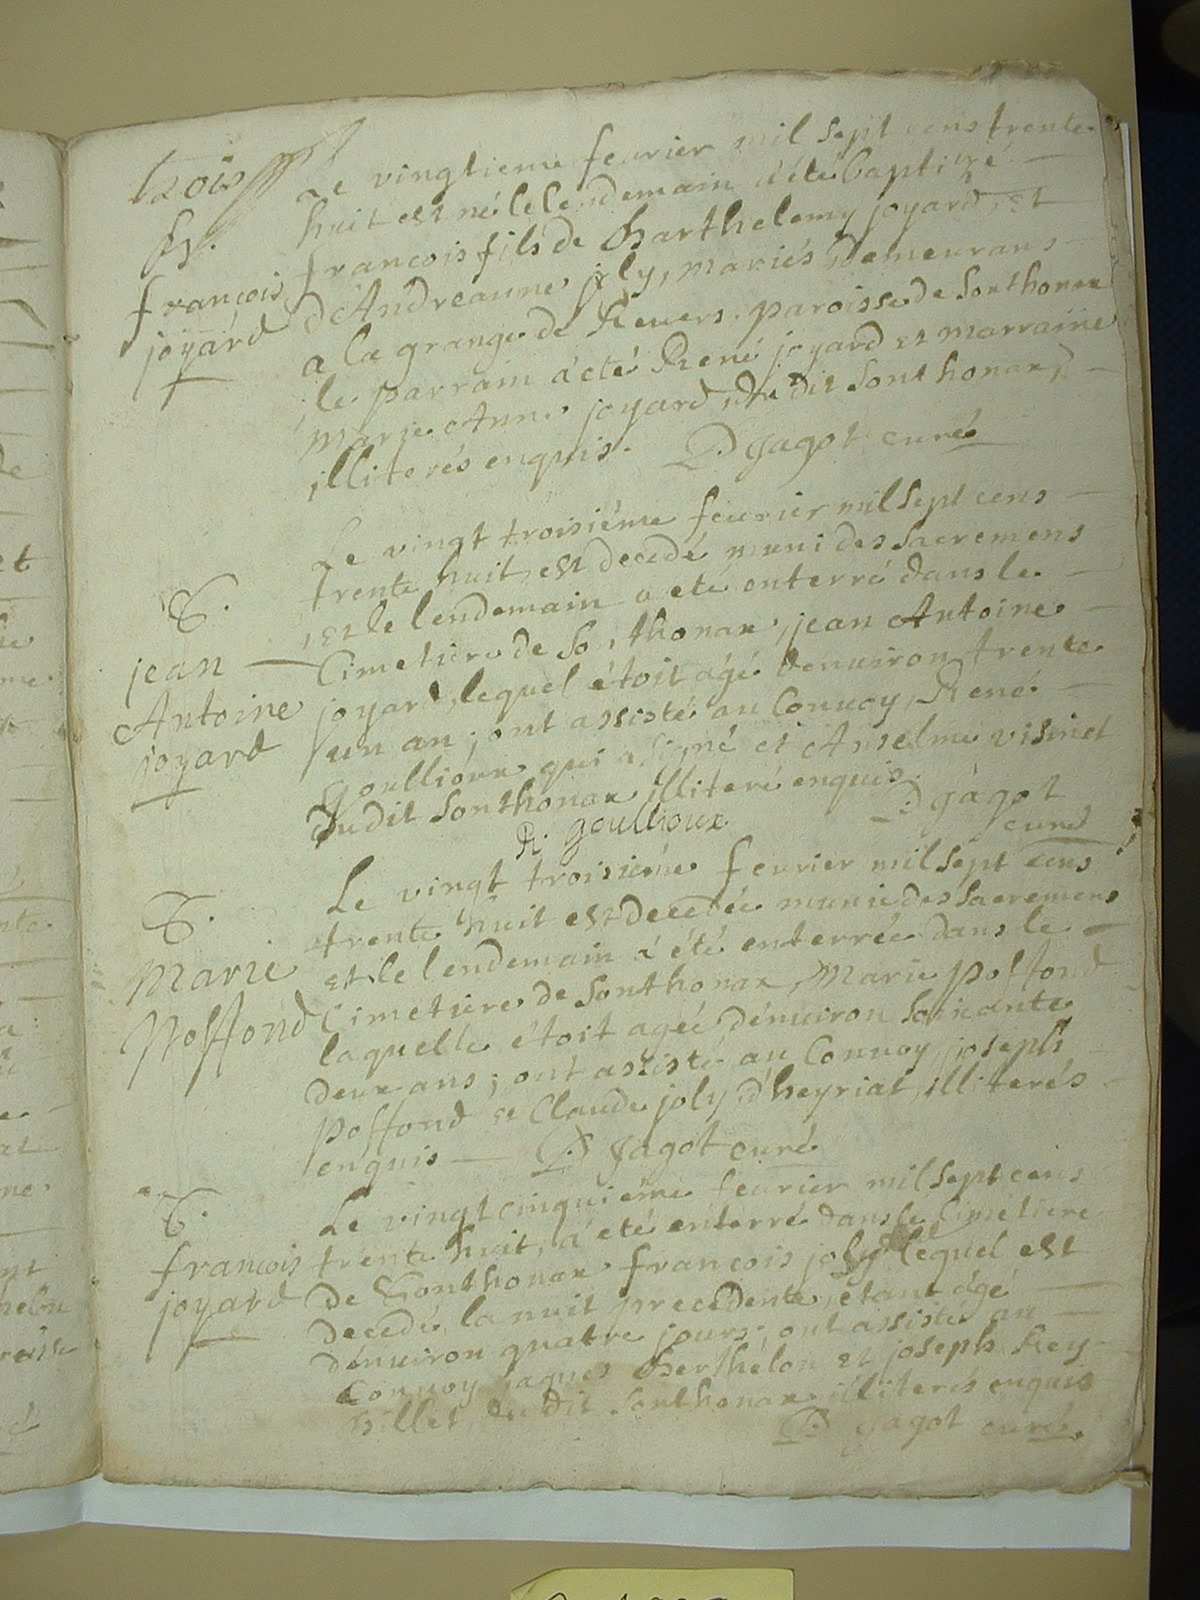 trois
B.
françois
joyard
Le vingtieme feurier mil sept cens trente
huit est né le lendemain a été baptizé
francois fils de Barthelemy joyard, et
d'Andreanne joly, mariés, demeurans
a la grange de Reuers, paroisse de Sonthonax
le parrain a été René joyard et marraine
Marie Anne joyard, du dit Sonthonax,
illiterés enquis. D. Jagot curé
S.
jean
Antoine
joyard
Le vingt troisiéme feurier mil sept cens
trente huit, est decedé muni des sacremens
et le lendemain a eté enterré dans le
Cimetiere de Sonthonax, jean Antoine
joyard, lequel étoit agé d'enuiron trente
un an; ont assisté au Conuoy, René
Goullioux qui a signé et Anselme visinet
du dit Sonthonax illiteré enquis.
R. goullioux
D. Jagot
curé
S.
Marie
Poffond
Le vingt troisiéme feurier mil sept cens
trente huit est decedée munie des sacremens
et le lendemain a été enterrée dans le
Cimetiere de Sonthonax, Marie Poffond
laquelle étoit agée d'enuiron soixante
deux ans; ont assisté au Conuoy, joseph
Poffond et Claude joly d'heyriat, illiterés
enquis — D. Jagot curé
S.
francois
joyard
Le vingt cinquiéme feurier mil sept cens
trente huit, a été enterré dans le Cimétiere
de Sonthonax francois joly lequel est
decedé, la nuit precedente, étant agé
d'enuiron quatre jours; ont assisté au
Conuoy jaques Berthélon et joseph Rey-
billet, du dit Sonthonax illiterés enquis
D. Jagot curé.